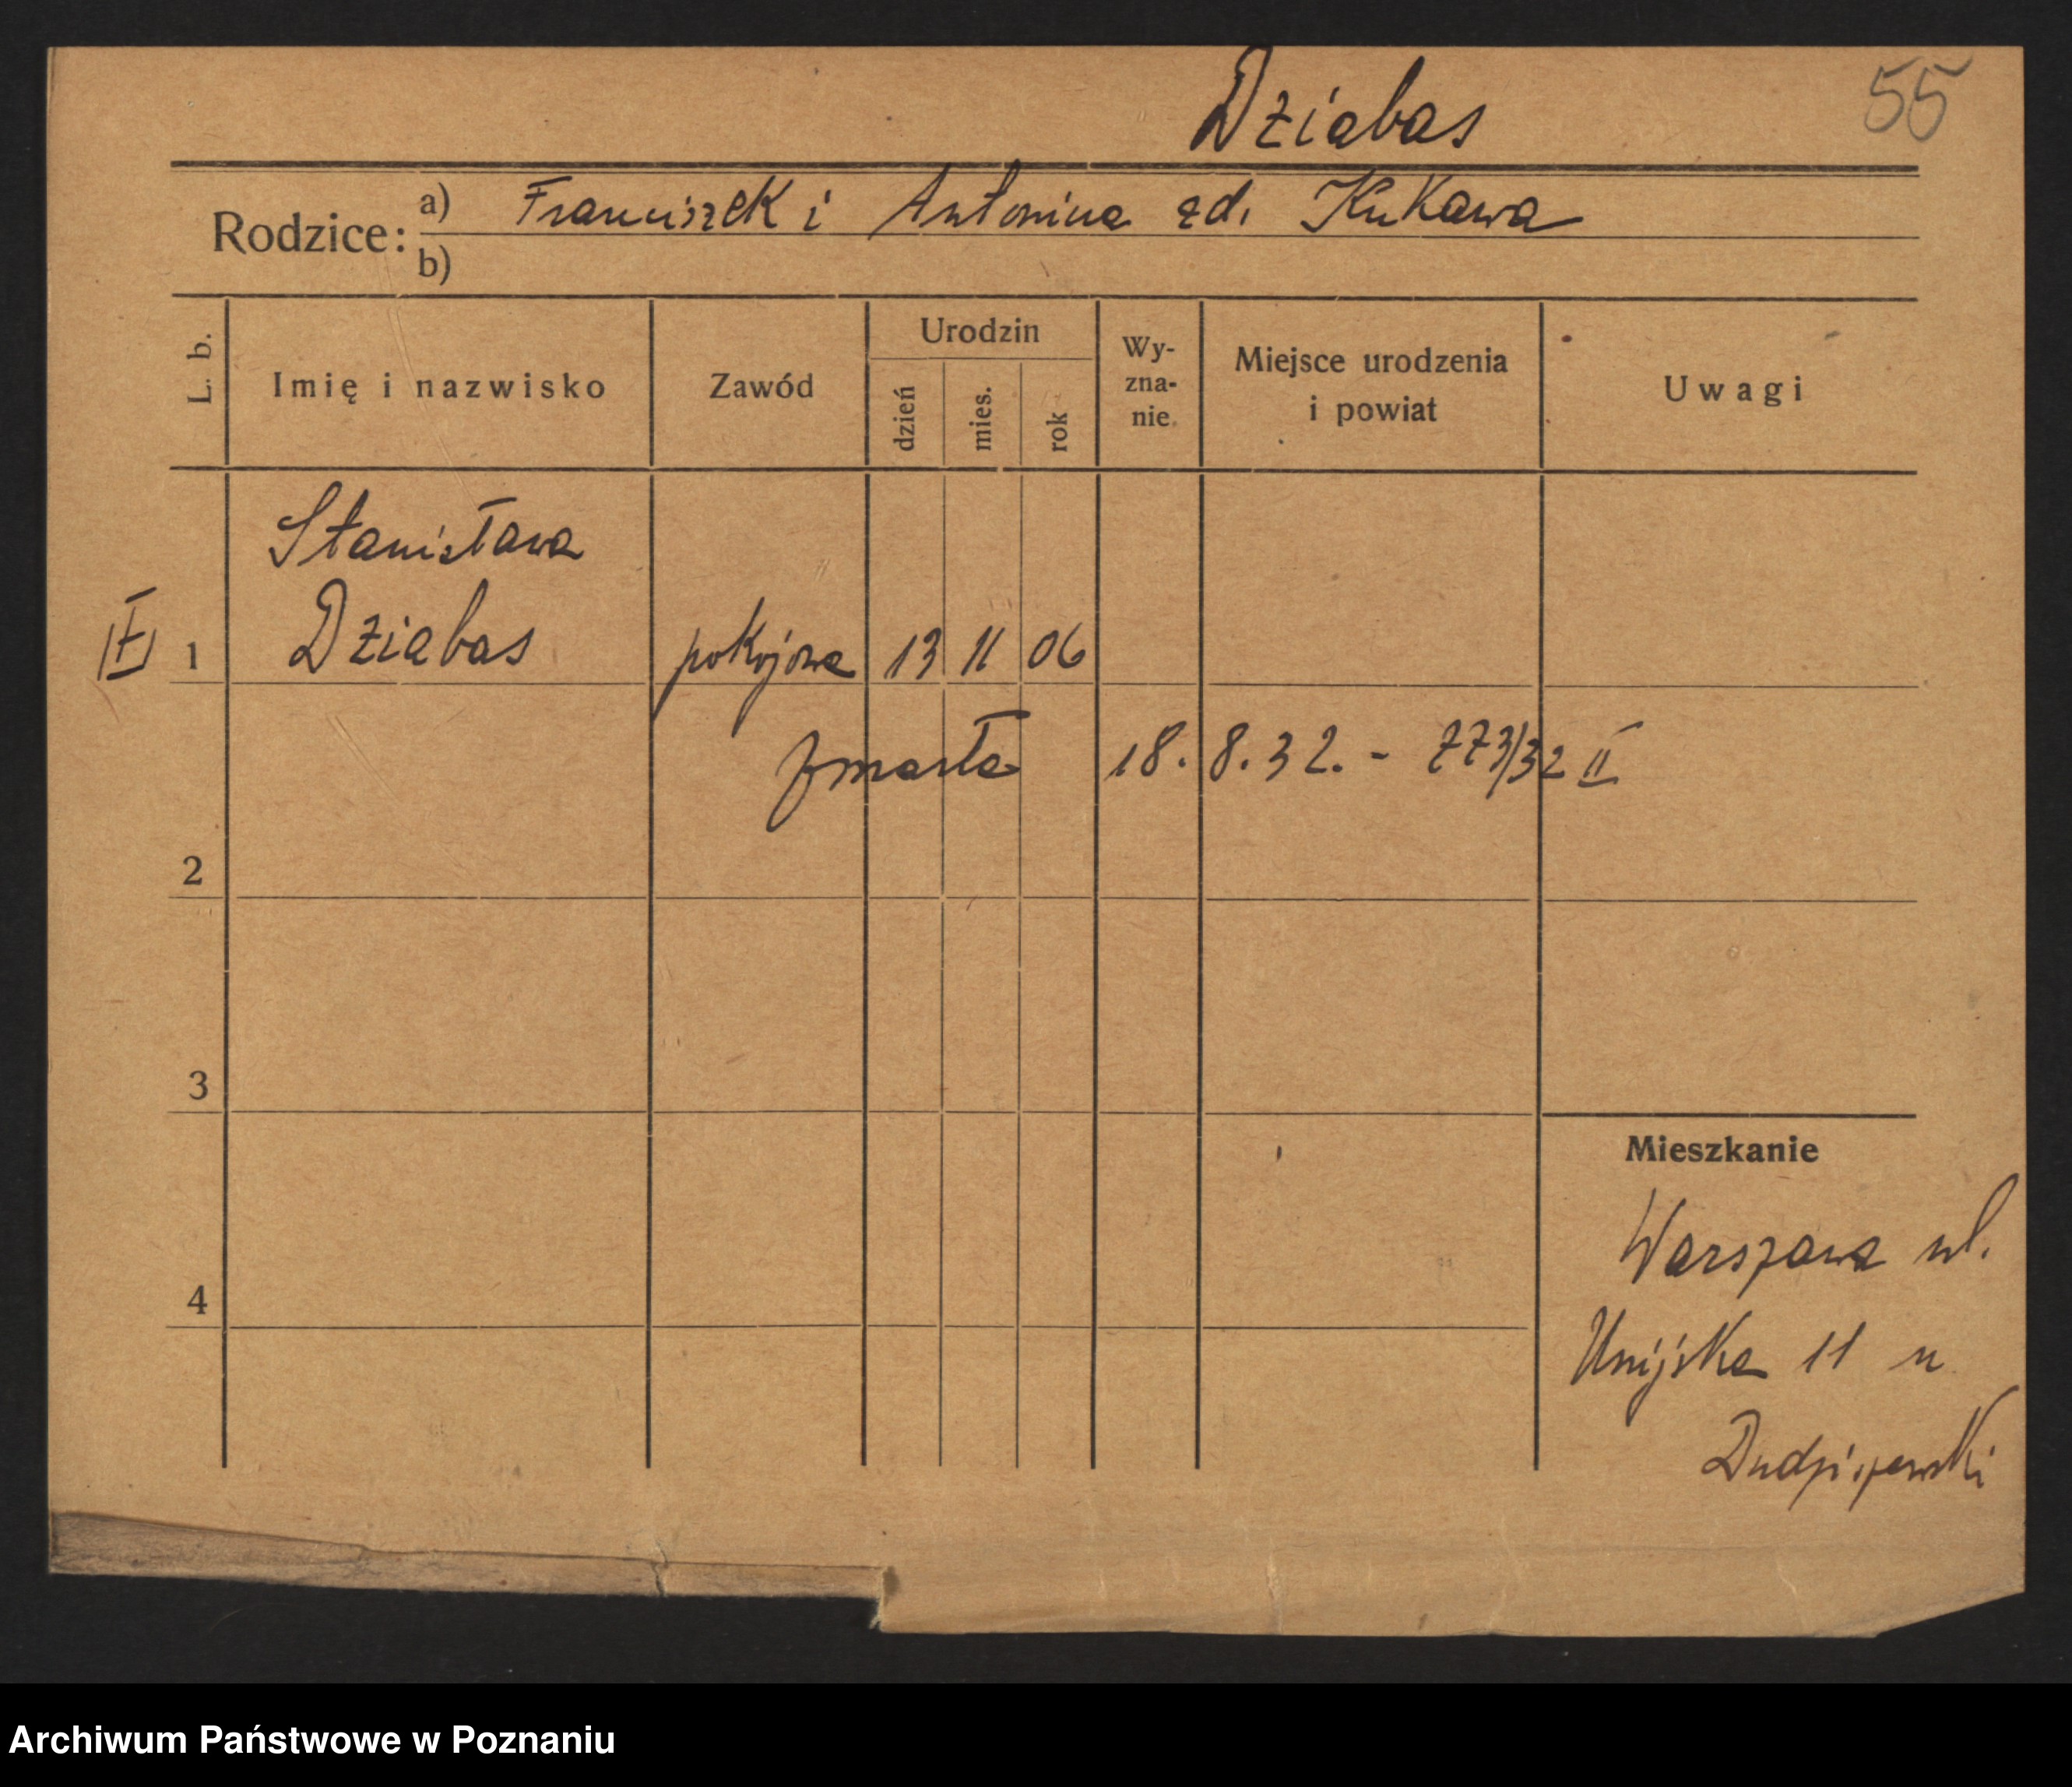 Dziabas 55
Rodzice: a) Franciszek i Antonina zd. Kukawa
b)
L. b. Imię i nazwisko Zawód Urodzin dzień mies. rok Wyznanie Miejsce urodzenia i powiat Uwagi
Stanisława
1 Dziabas pokojowa 13 11 06
zmarła 18. 8. 32. - 773/32 II
2
3
Mieszkanie
Warszawa ul.
4
Unijska 11 u
Archiwum Państwowe w Poznaniu